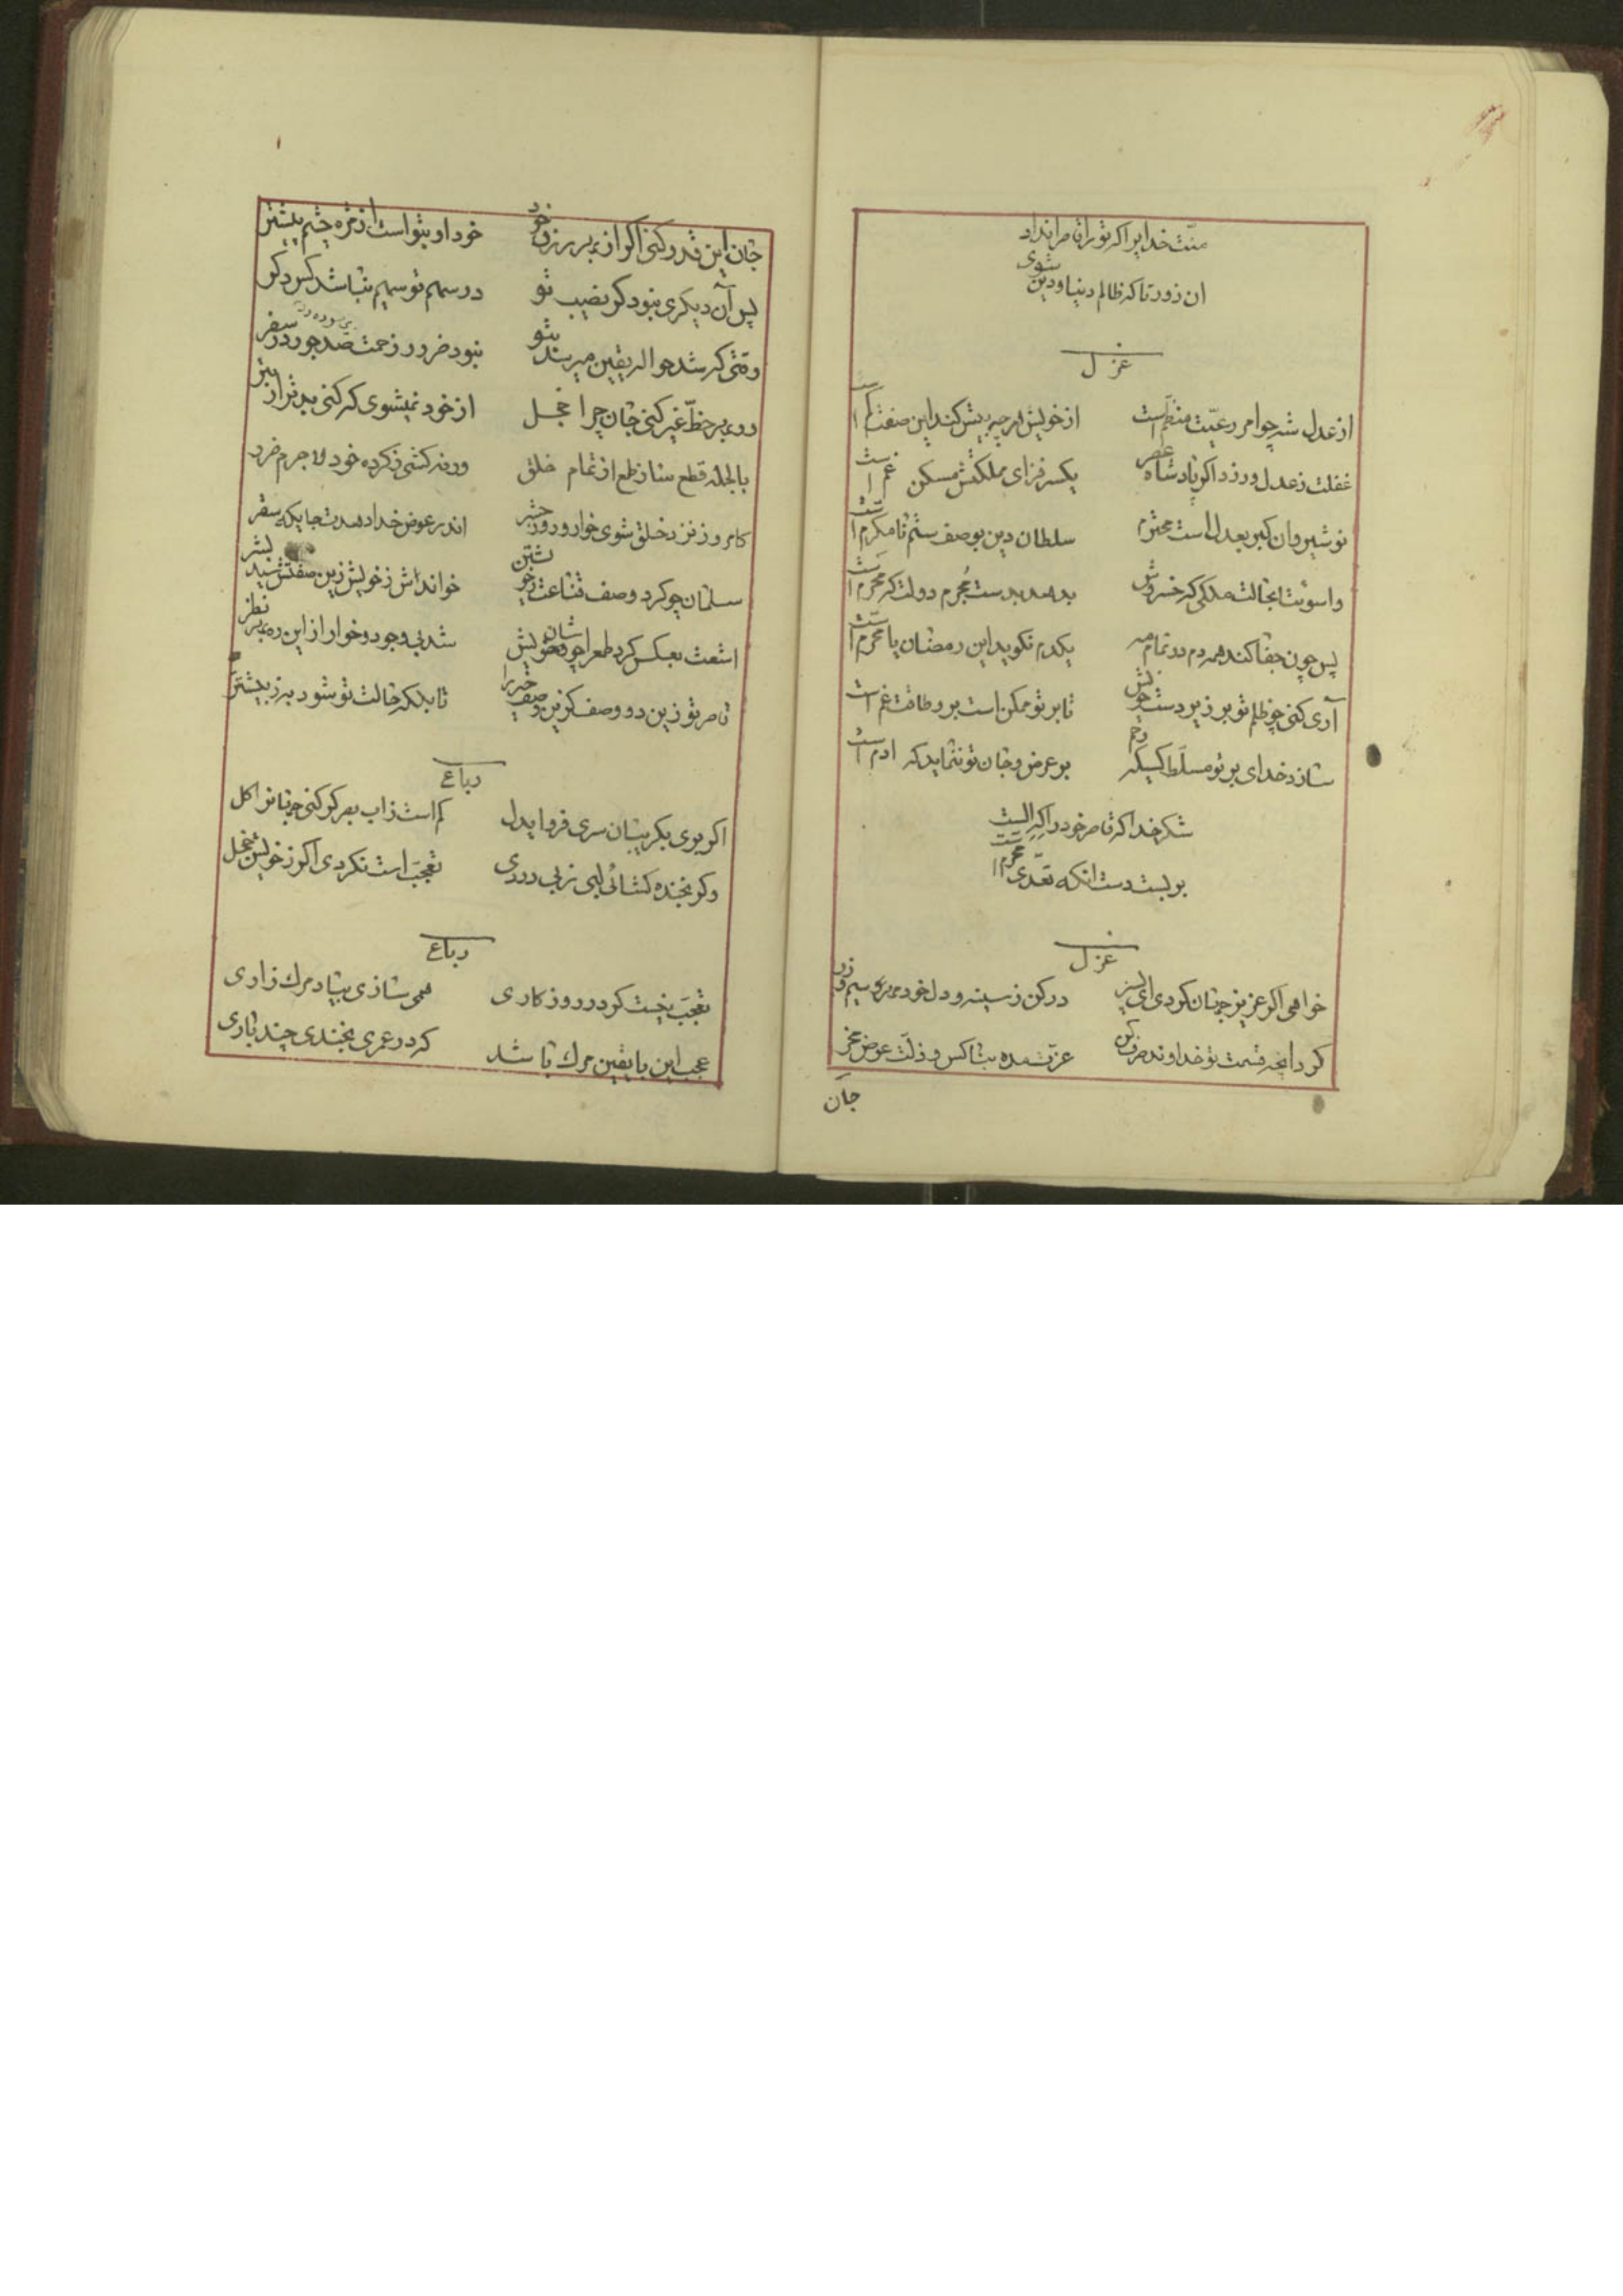 منّت خدایرا که تو را قاصرا نداد
آن زور تا که ظالم دنیا و دین شوی
غزل
از عدل شه چو امر رعیّت منظّم است از خویش هر چه بیش کند این صفت کم است
غفلت ز عدل ورزد اگر پادشاه عصر یکسر فزای مملکتش مسکن غم است
نوشیروان گبر بعدل است محترم سلطان دین بوصف ستم نامکرم است
واسوئتا بحالت ملکی که خسروش بدهد بدست مُجرم دولت که محرم است
پس چون جفا کند همه دم در تمام مه یکدم نگوید این رمضان یا محرّم است
آری کنی چو ظلم تو بر زیردست خویش تا بر تو ممکن است بر و طاقت غم است
سازد خدای بر تو مسلّط کسیکه رحم بر عرض و جان تو ننماید که ادم است
شکر خدا که قاصر خود را که الست
بربست دست آنکه تعدّی محرم است
غزل
خواهی اگر عزیز جهان گردی ای پسر در کن ز سینه و دل خود مهر سیم و زر
کرد آنچه قسمت تو خداوند صرف کن عزّت مده بناکس و ذلّت عوض مخر
جان
جان این قدر و کنی اگر از بهر رزق خود خود او بتو است از مژه چشم پیشتر
پس آن دیگری نبود گر نصیب تو در سهم تو سهیم نباشد کس دگر
وقتی که شد حواله یقین میرسد بتو نبود ضرور زحمت صد جور در سفر
دوری بر حظّ غیر کنی جان چرا خجل از خود نمیشوی که کنی بدتر از بتر
بالجمله قطع ساز طمع از تمام خلق ورنه کشی ز کرده خود لا جرم ضرر
کامروز نزد خلق شوی خوار و روز حشر اندر عوض خدا دهدت جایگه سقر
سلمان چو کرد وصف قناعت بخویشتن خواند اش ز خویش زین صفتش سید بشر
اشعث بعکس کرد طمع را چو شان خویش شد بی وجود و خوار از این ره بهر نظر
قاصر تو زین دو وصف گزین وصف خیر را تا بلکه حالت تو شود به ز پیشتر
رباعی
اگر بوی بگریبان سری فرو اید دل کم است ز آب بصر گر کنی جهانرا گل
وگر بخنده گشائی لبی ز بی دردی تعجّب است نگردی اگر ز خویش خجل
رباعی
تعجّب نیست گر در روزگاری همی سازی بیاد مرگ زاری
عجب این با یقین مرگ باشد که در عمری بخندی چند باری